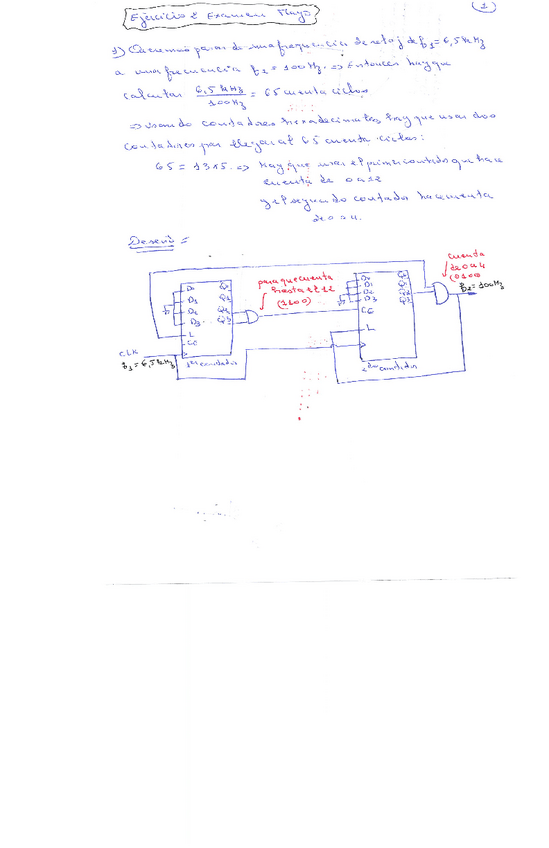 Ejercicio 2 Examen Mayo
1
1) Queremos pasar de una frequencia de reloj de f1 = 6,5 kHz
a una frecuencia f2 = 100Hz. => Entonces hay que
calcular 6,5 kHz / 100Hz = 65 cuenta ciclos
=> usando contadores hexadecimales hay que usar dos
contadores para llegar al 65 cuenta ciclos:
65 = 13x5. => Hay que usar el primer contador que haga
cuenta de 0 a 12
y el segundo contador haga cuenta
de 0 a 4.
Diseño =
para que cuenta
hasta el 12
(1100)
cuenta
de 0 a 4
(0100
f2 = 100Hz
D0 Q0
D1 Q1
D2 Q2
D3 Q3
L
CE
CLK
f1 = 6,5 kHz
1er contador
D0 Q0
D1 Q1
D2 Q2
D3 Q3
CE
L
2do contador